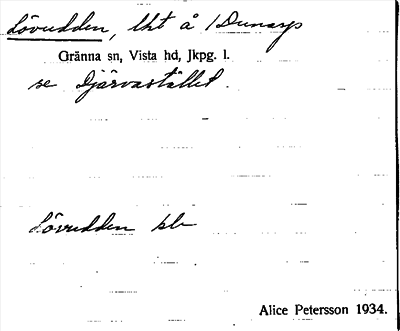 Lövudden, lht å 1 Dunarp
Gränna sn, Vista hd, Jkpg. l.
se Djärvastället.
Lövudden bb
Alice Petersson 1934.